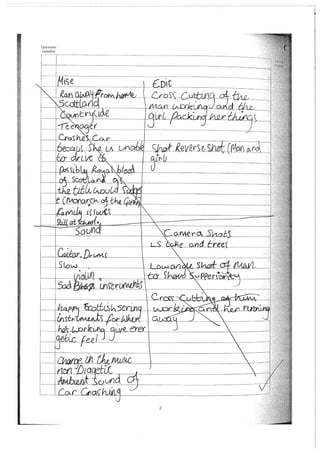 Question
number
Mise
Ran away from home
Scotland
Countryside
Teenager
Crashes Car
becaus She is unable
to drive it
possibly Royal blood
of Scotland as
the title would Sugges
t (Monarch of the Glen)
family issues
Still at School
Edit
Cross Cutting of the
man working and the
girl packing her things
Shot Reverse Shot (Man and
girl)
Sound
Guitar, Drums
Slow
violin
Sad instruments
happy Scottish String
instruments for when
hes working give ener
getic feel
Change in the music
non Diagetic
Ambient Sound of
Car Crashing
Camera Shots
LS Lake and trees
Low angle Shot of Man
to Show Supperiority
Cross Cutting of him
working and her running
away
2